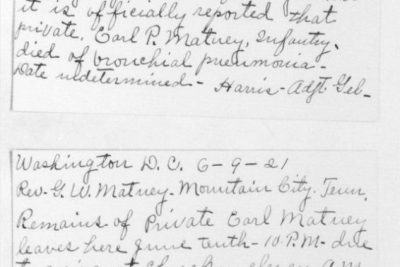 it is officially reported that
private. Earl P. Matney, Infantry.
died of bronchial pneumonia -
Date undetermined - Harris - Adjt. Gel -
Washington D. C. 6-9-21
Rev. G. W. Matney. Mountain City. Tenn.
Remains of Private Earl Matney
leaves here June tenth - 10. P.M. due